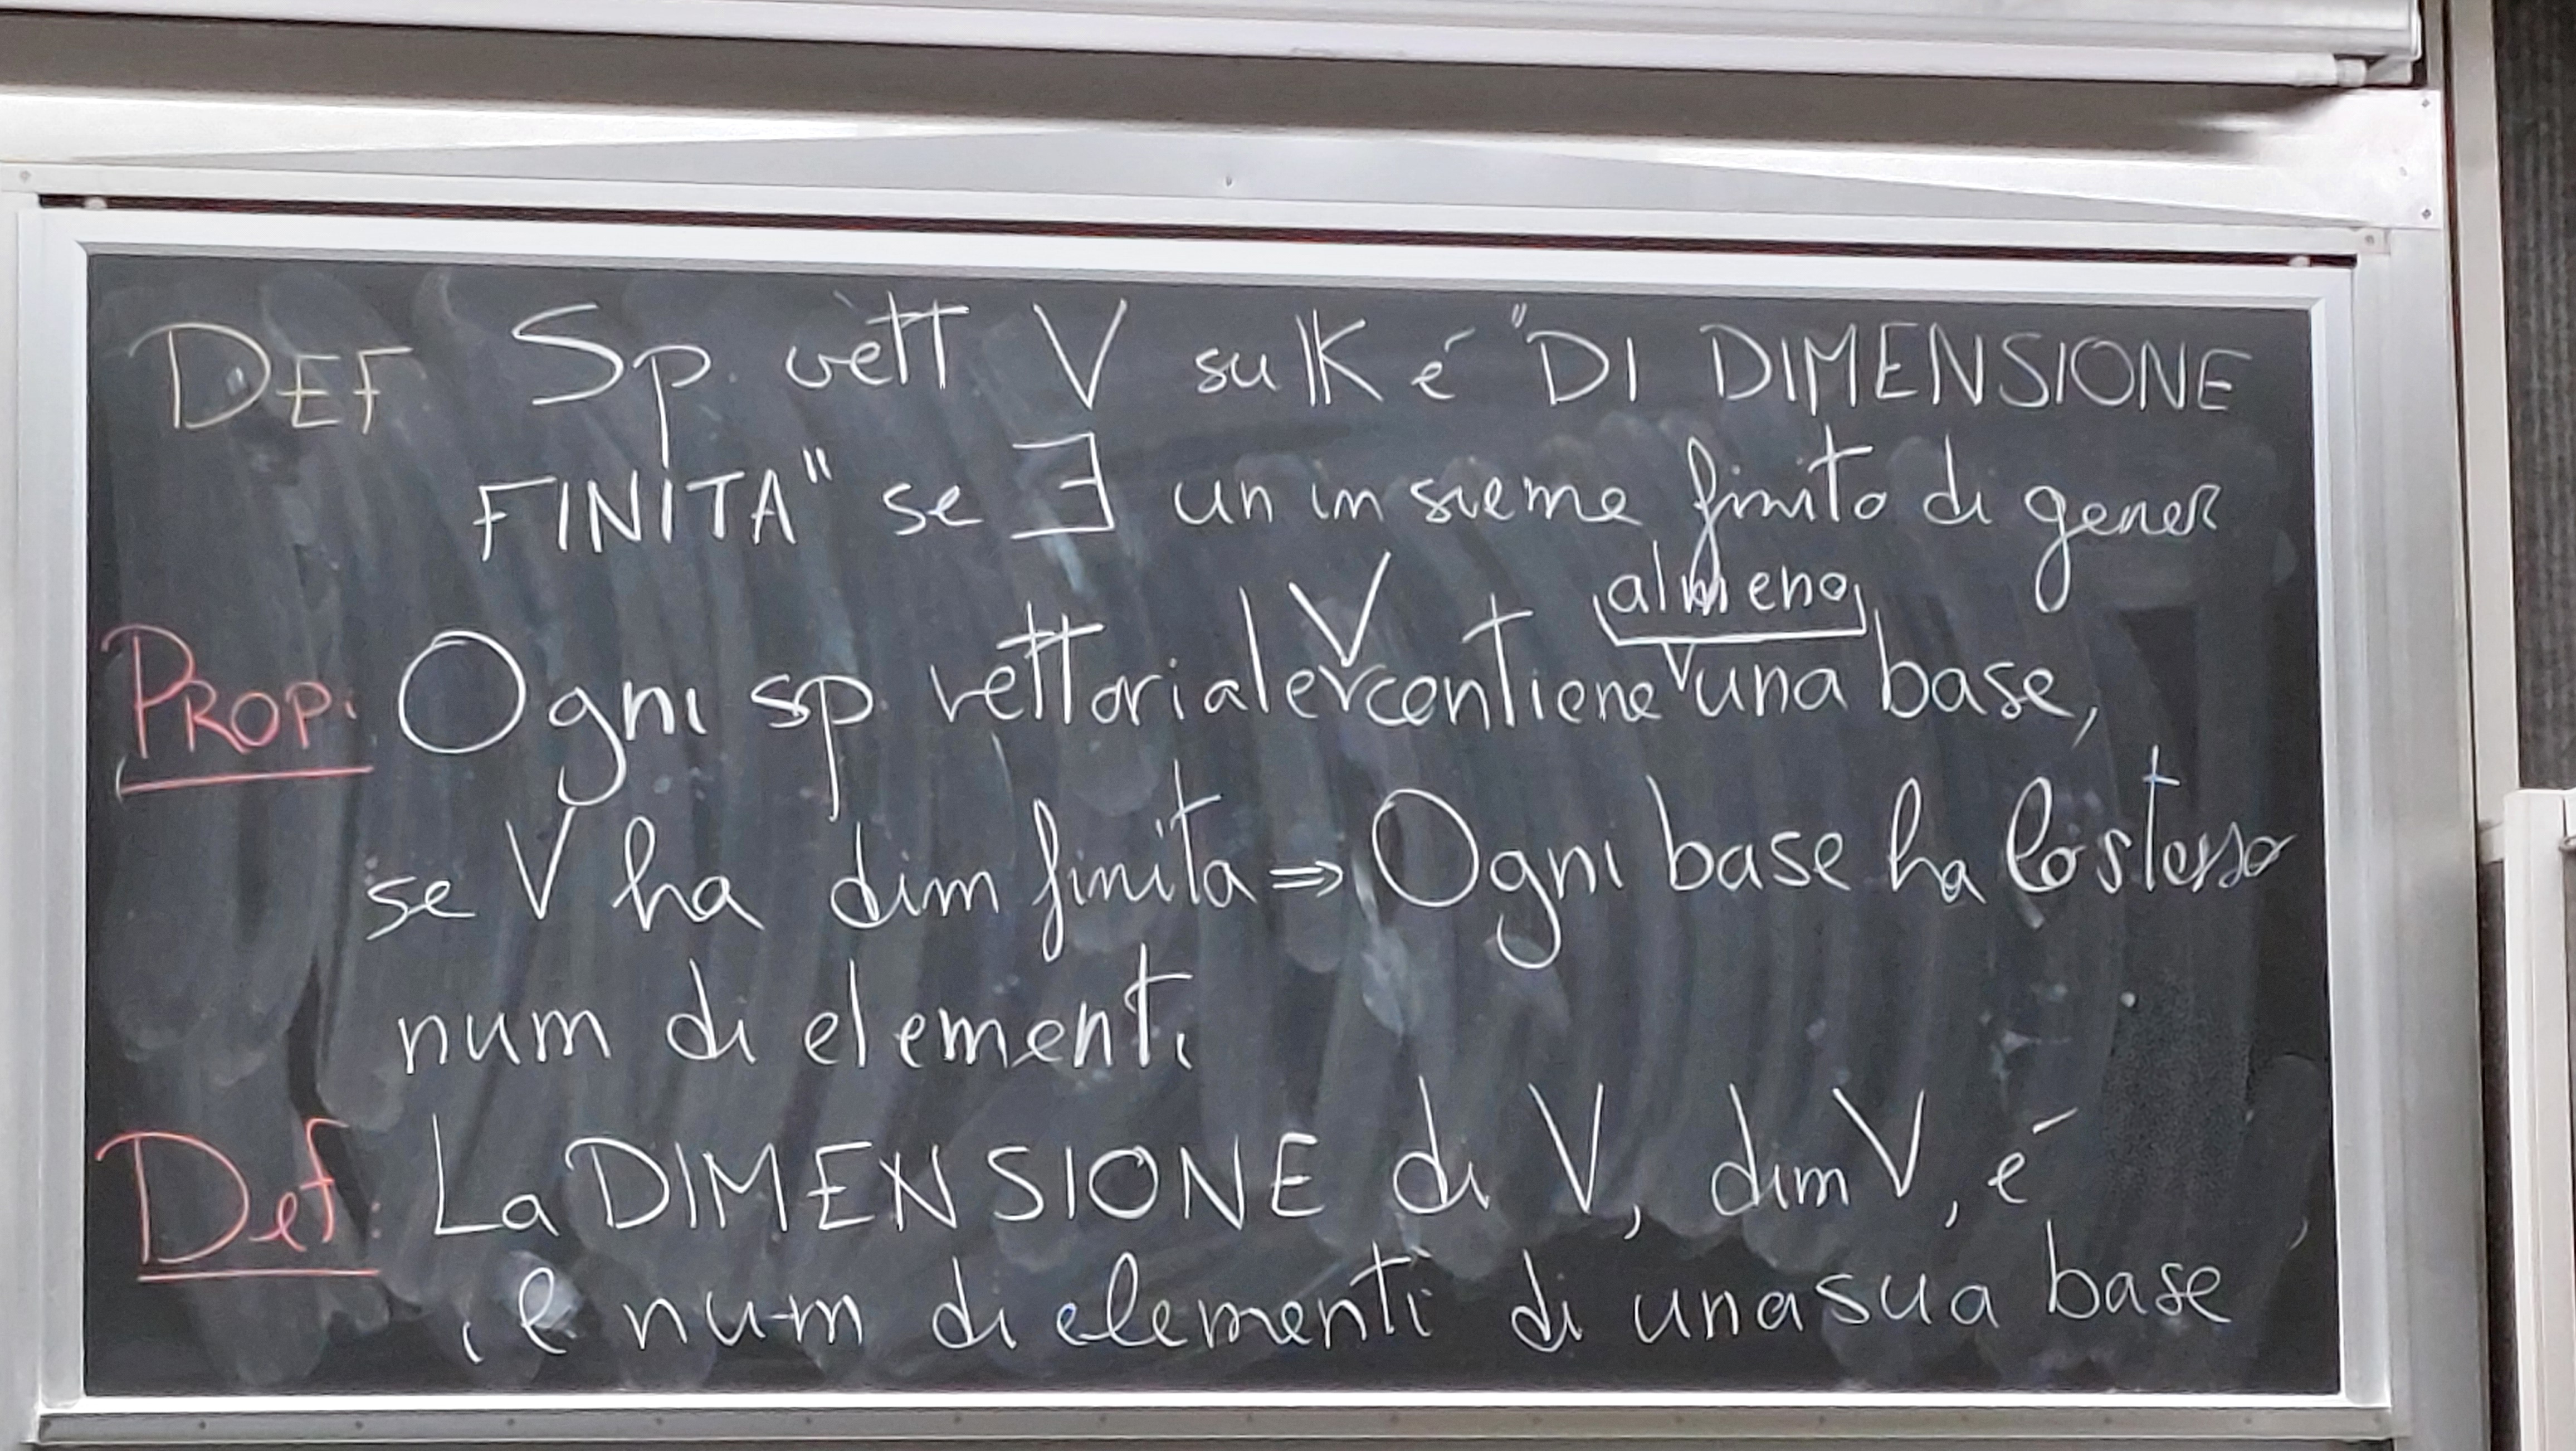 DEF Sp. vett V su K é "DI DIMENSIONE
FINITA" se ∃ un insieme finito di gener
PROP: Ogni sp. vettoriale V contiene almeno una base,
se V ha dim finita ⇒ Ogni base ha lo stesso
num di elementi
Def: La DIMENSIONE di V, dim V, é
il num di elementi di una sua base